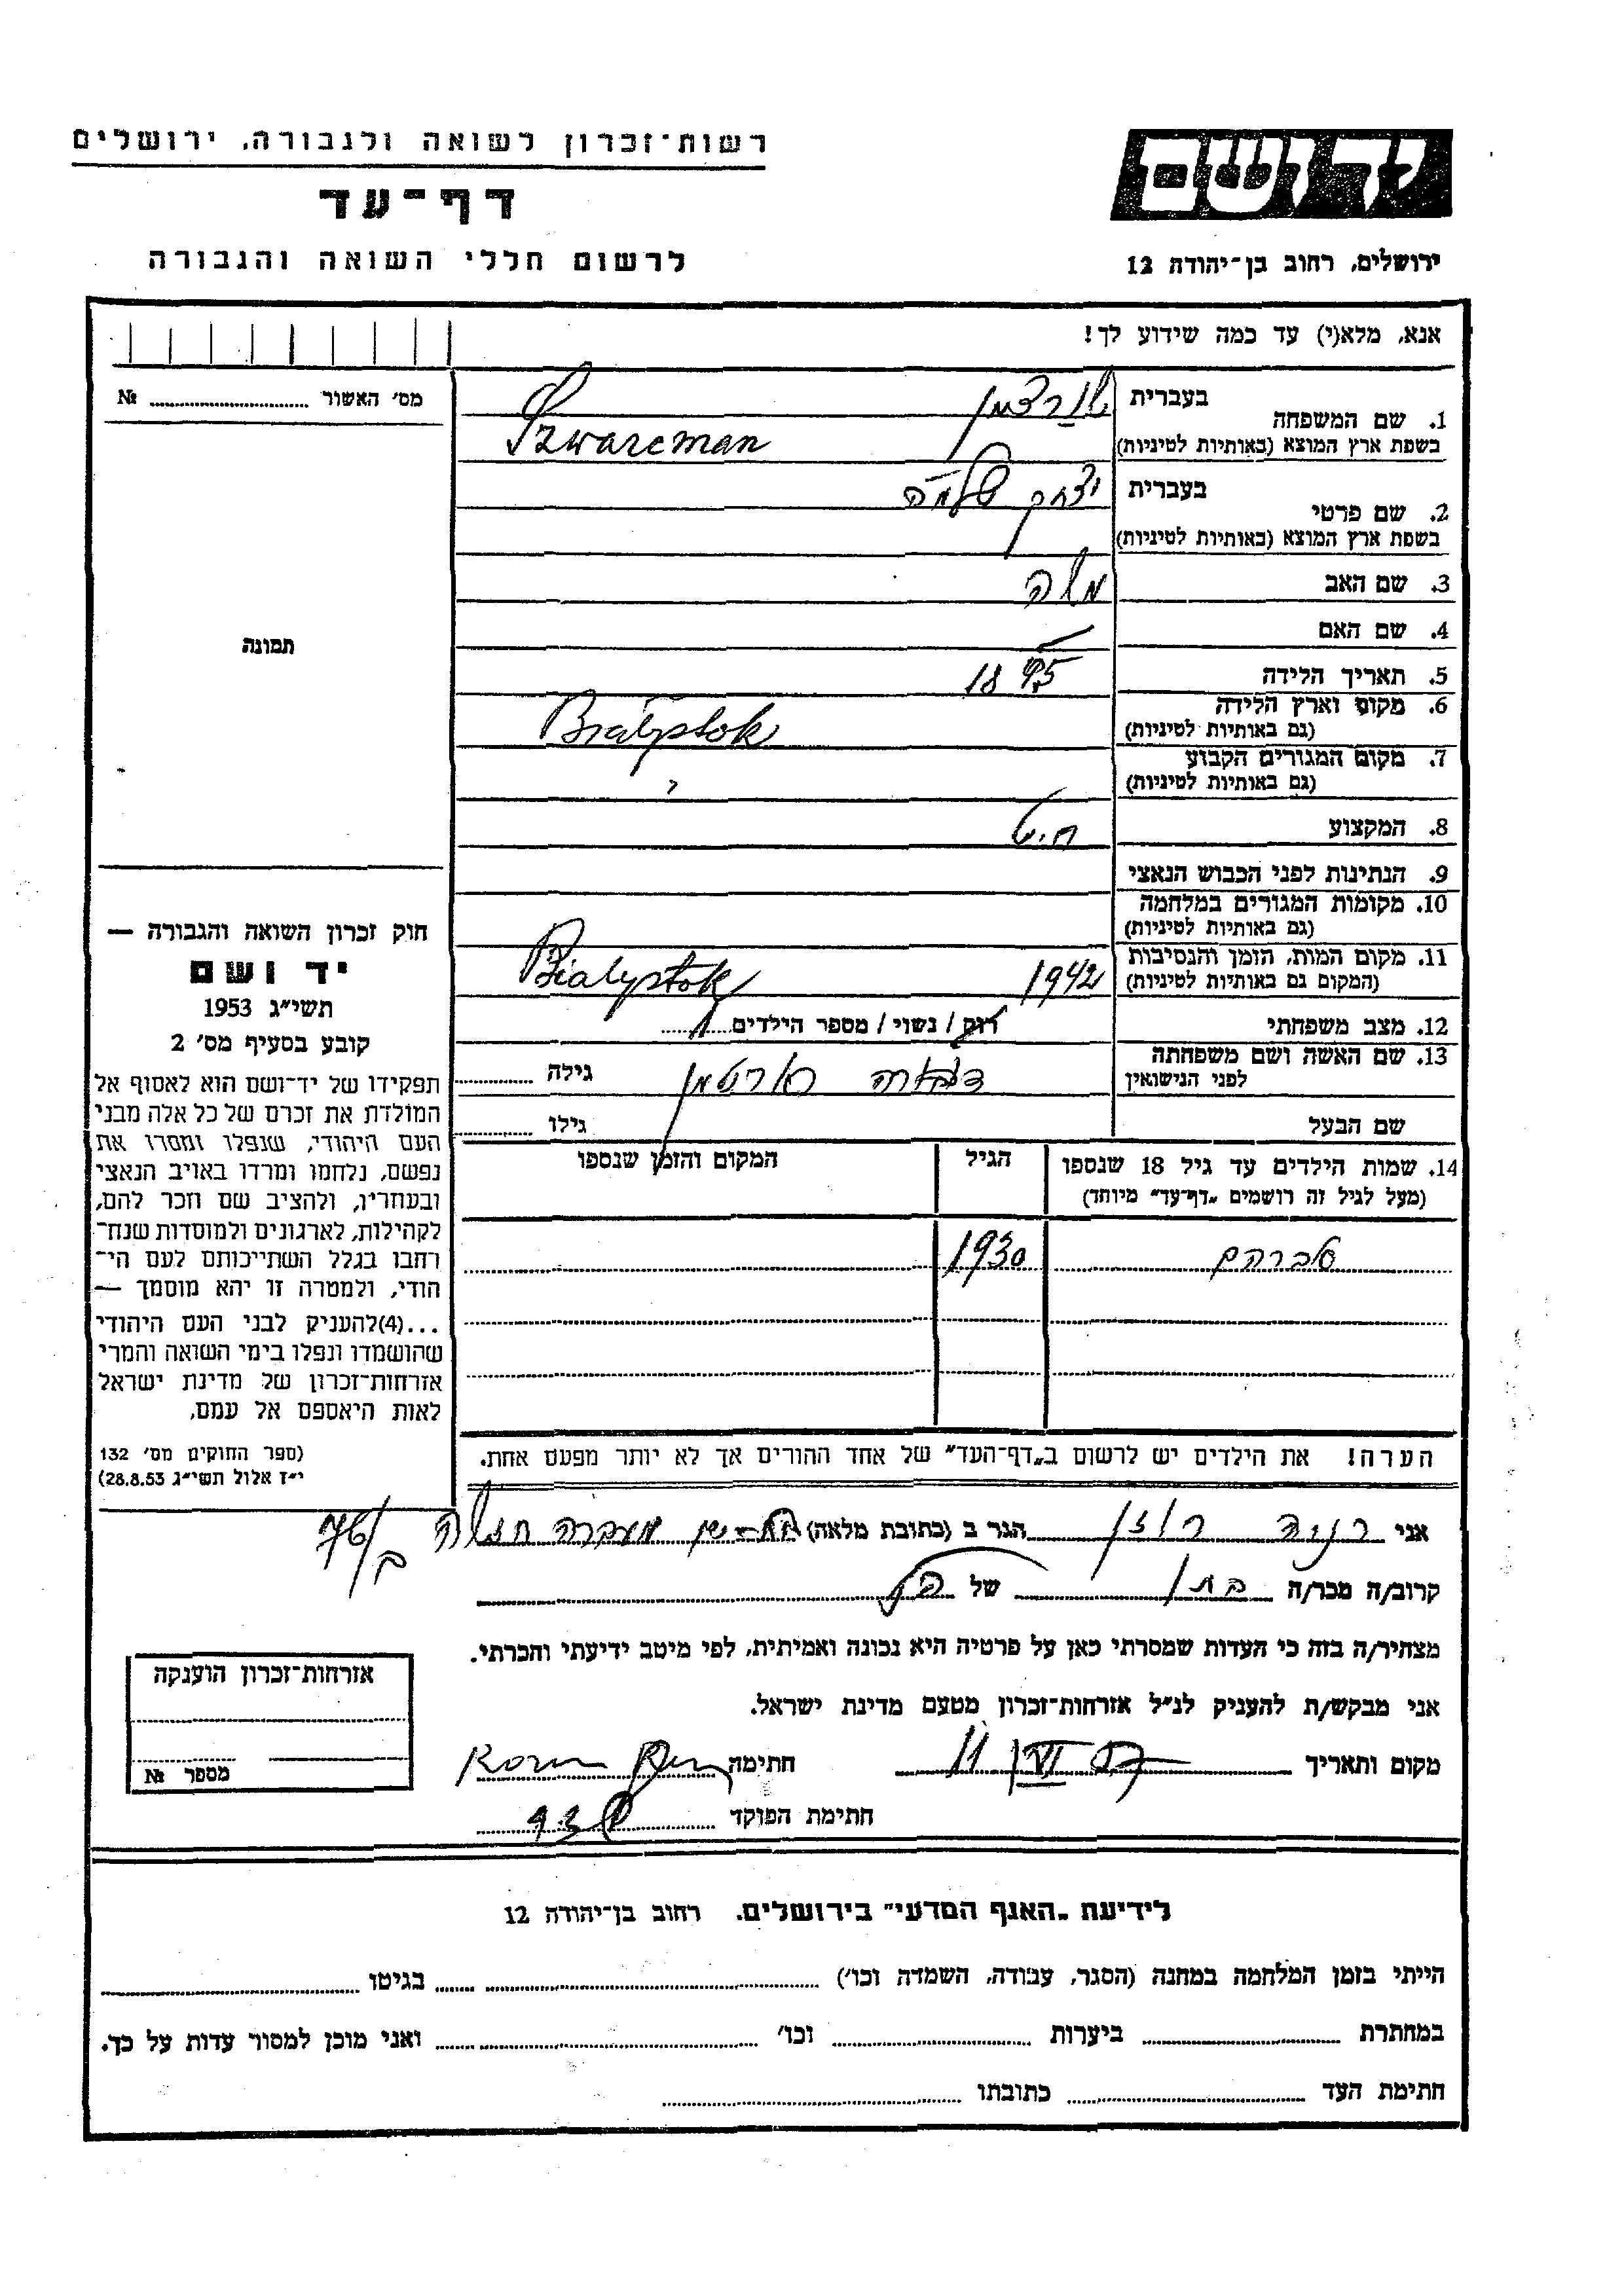 רשות-זכרון לשואה ולגבורה, ירושלים
דף-עד
לרשום חללי השואה והגבורה
יד ושם
ירושלים, רחוב בן-יהודה 12
אנא, מלא(י) עד כמה שידוע לך!
מס' האשור № ........
1. שם המשפחה בעברית שורצמן
בשפת ארץ המוצא (באותיות לטיניות) Szwarcman
2. שם פרטי בעברית יצחק שלמה
בשפת ארץ המוצא (באותיות לטיניות)
3. שם האב משה
4. שם האם
5. תאריך הלידה 1895
6. מקום וארץ הלידה Białystok
(גם באותיות לטיניות)
7. מקום המגורים הקבוע
(גם באותיות לטיניות)
8. המקצוע חיט
9. הנתינות לפני הכבוש הנאצי
10. מקומות המגורים במלחמה
(גם באותיות לטיניות)
11. מקום המות, הזמן והנסיבות 1942 Białystok
(המקום גם באותיות לטיניות)
12. מצב משפחתי רוק / נשוי / מספר הילדים 1
13. שם האשה ושם משפחתה דבורה גילה
לפני הנישואין
שם הבעל גילו
14. שמות הילדים עד גיל 18 שנספו הגיל המקום והזמן שנספו
(מעל לגיל זה רושמים "דף-עד" מיוחד)
אברהם 1930
הערה! את הילדים יש לרשום ב"דף-העד" של אחד ההורים אך לא יותר מפעם אחת.
תמונה
חוק זכרון השואה והגבורה —
יד ושם
תשי"ג 1953
קובע בסעיף מס' 2
תפקידו של יד-ושם הוא לאסוף אל
המולדת את זכרם של כל אלה מבני
העם היהודי, שנפלו ומסרו את
נפשם, נלחמו ומרדו באויב הנאצי
ובעוזריו, ולהציב שם וזכר להם,
לקהילות, לארגונים ולמוסדות שנח־
רבו בגלל השתייכותם לעם הי־
הודי, ולמטרה זו יהא מוסמך —
...(4) להעניק לבני העם היהודי
שהושמדו ונפלו בימי השואה והמרי
אזרחות-זכרון של מדינת ישראל
לאות היאספם אל עמם.
(ספר החוקים מס' 132
י"ז אלול תשי"ג 28.8.53)
אני רוזן הגר ב (כתובת מלאה) מעברה 76/ב
קרוב/ה מכר/ה בת של הנ"ל
מצהיר/ה בזה כי העדות שמסרתי כאן על פרטיה היא נכונה ואמיתית, לפי מיטב ידיעתי והכרתי.
אני מבקש/ת להעניק לנ"ל אזרחות-זכרון מטעם מדינת ישראל.
מקום ותאריך 11 VI חתימה
חתימת הפוקד
אזרחות-זכרון הוענקה
מספר №
לידיעת "האגף המדעי" בירושלים, רחוב בן-יהודה 12
הייתי בזמן המלחמה במחנה (הסגר, עבודה, השמדה וכו') בגיטו
במחתרת ביערות וכו' ואני מוכן למסור עדות על כך.
חתימת העד כתובתו